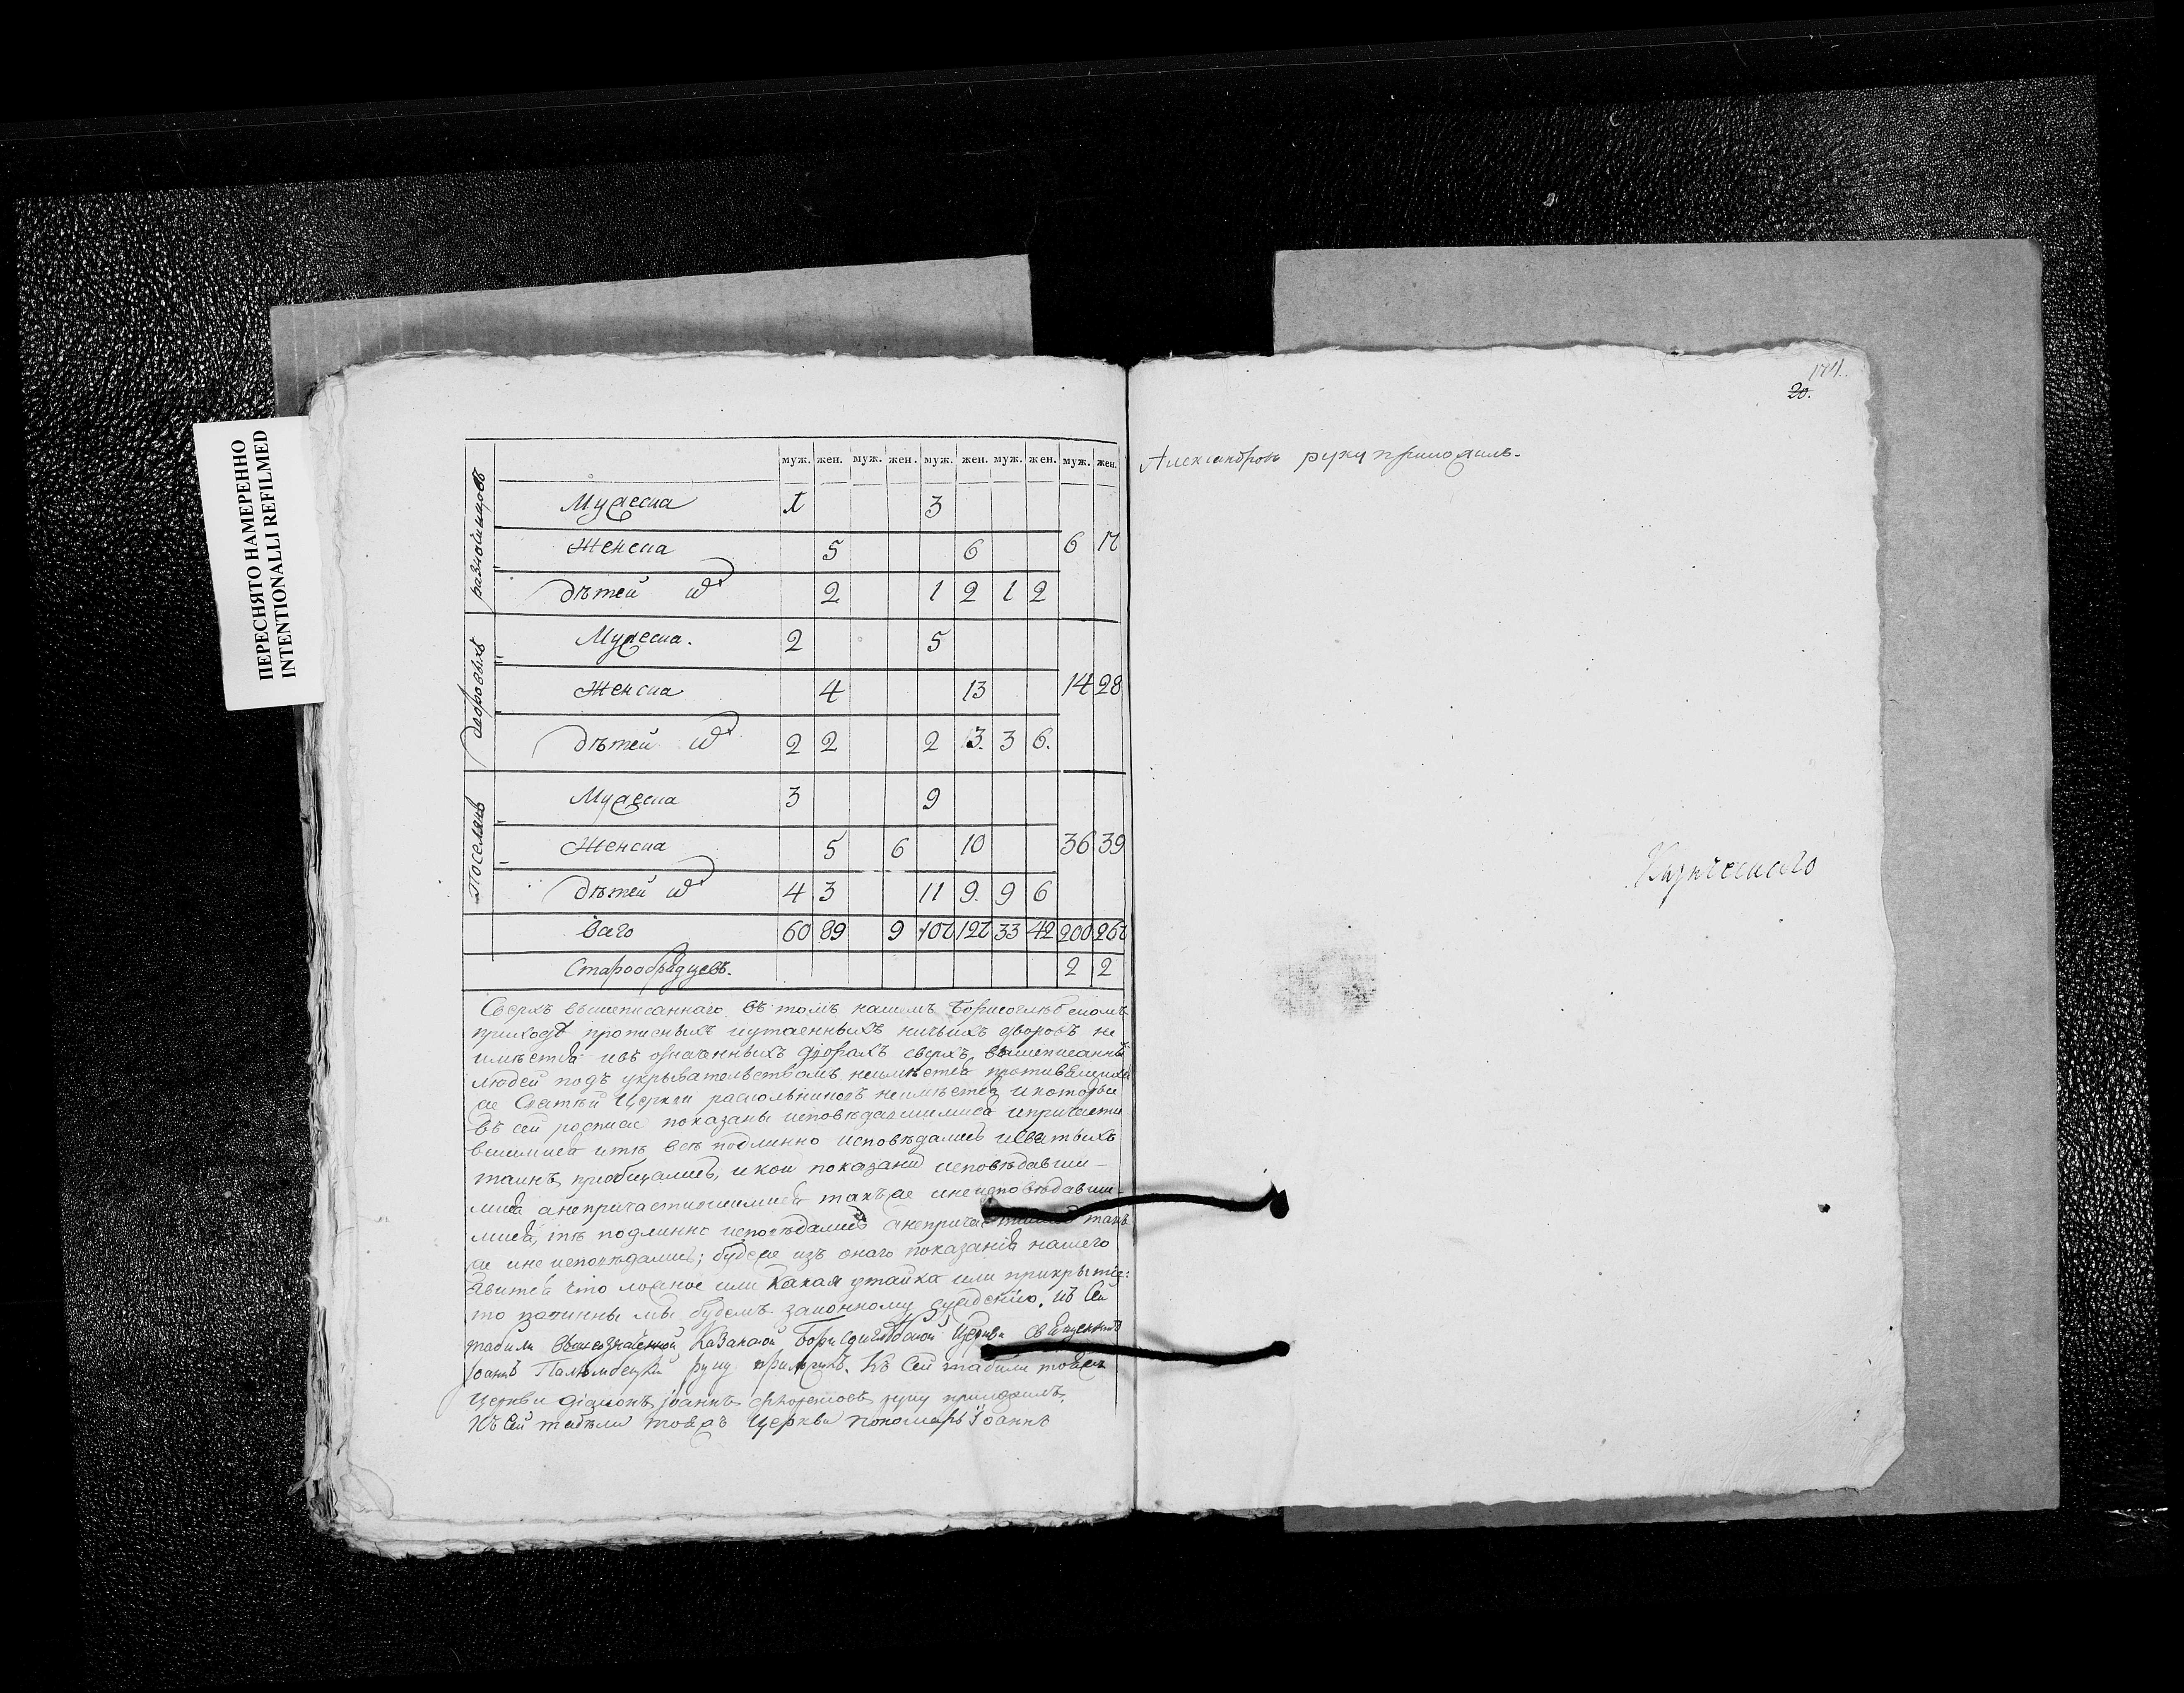 ПЕРЕСНЯТО НАМЕРЕННО
INTENTIONALLI REFILMED
муж. жен. муж. жен. муж. жен. муж. жен. муж. жен.
разночинцовъ
Мужеска 1 3
Женска 5 6 6 17
Дѣтей ихъ 2 1 2 1 2
дворовыхъ
Мужеска. 2 5
Женска 4 13 14 28
Дѣтей ихъ 2 2 2 3. 3 6.
Поселянъ
Мужеска 3 9
Женска 5 6 10 36 39
Дѣтей ихъ 4 3 11 9. 9 6
Всего 60 89 9 107 127 33 42 200 267
Старообрядцевъ. 2 2
Сверхъ вышеписаннаго въ томъ нашемъ Борисоглѣбскомъ
приходѣ прописныхъ иутаенныхъ ничьихъ дворовъ не
имѣется ивъ означенныхъ дворахъ сверхъ вышеписанны
людей подъ укрывательствомъ неимѣется противящихся
же Святѣй Церкви раскольниковъ неимѣется икоторые
въ сей росписе показаны исповѣдавшимися ипричасти
вшимися итѣ всѣ подлинно исповѣдались исвятыхъ
таинъ приобщались, икои показаны исповѣдавши-
мися анепричастившимися такъже инеисповѣдавши-
мися, тѣ подлинно исповѣдались анепричастились такъ
же инеисповѣдались; будеже изъ онаго показанія нашего
явится что ложное или какая утайка или прикрытіе:
то повинны мы будемъ законному суждению. Къ сей
табели вышеозначенной Казанской Борисоглѣбской Церкви священникъ
Іоаннъ руку приложилъ. Къ сей табели тояже
Церкви діаконъ Іоаннъ руку приложилъ.
Къ сей табели тояжъ Церкви пономарь Іоаннъ
174.
20.
Александровъ руку приложилъ.
Купческаго